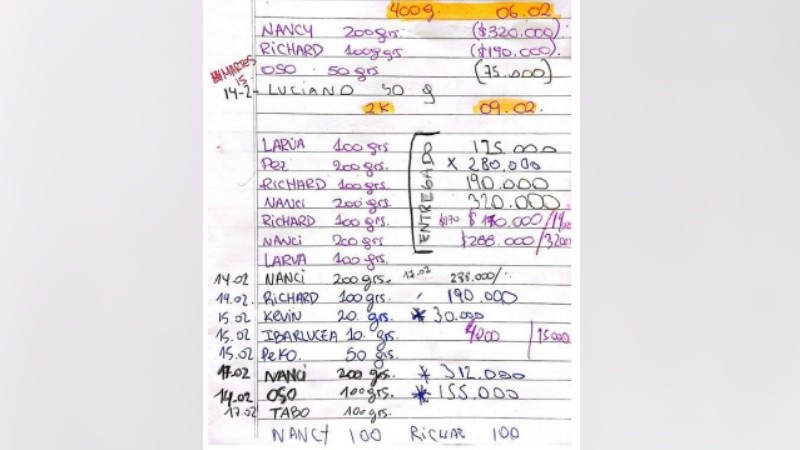 400g. 06.02
NANCY 200grs. ($320.000)
RICHARD 100grs ($190.000).
MARTES 15
OSO 50 grs (75.000)
14-2- LUCIANO 50 g
2K 09.02.
LARUA 100grs 175.000
Pez 200grs. x 280.000
RICHARD 100grs. 190.000
NANCi 200grs 320.000
ENTREGADO
RICHARD 100grs. $170 $170.000/
NANCi 200grs $288.000/
LARVA 100grs.
14.02 NANCi 200grs. 17.02 288.000/.
14.02. RICHARD 100grs. 190.000
15.02 KEVIN 20. grs. * 30.000
15.02. IBARLUCEA 10. grs. 4000 15000
15.02 PeKO. 50 grs.
17.02 NANCi 200 grs. * 312.000
14.02 OSO 100grs. * 155.000
17.02 TABO 100grs.
NANCY 100 RICHAR 100